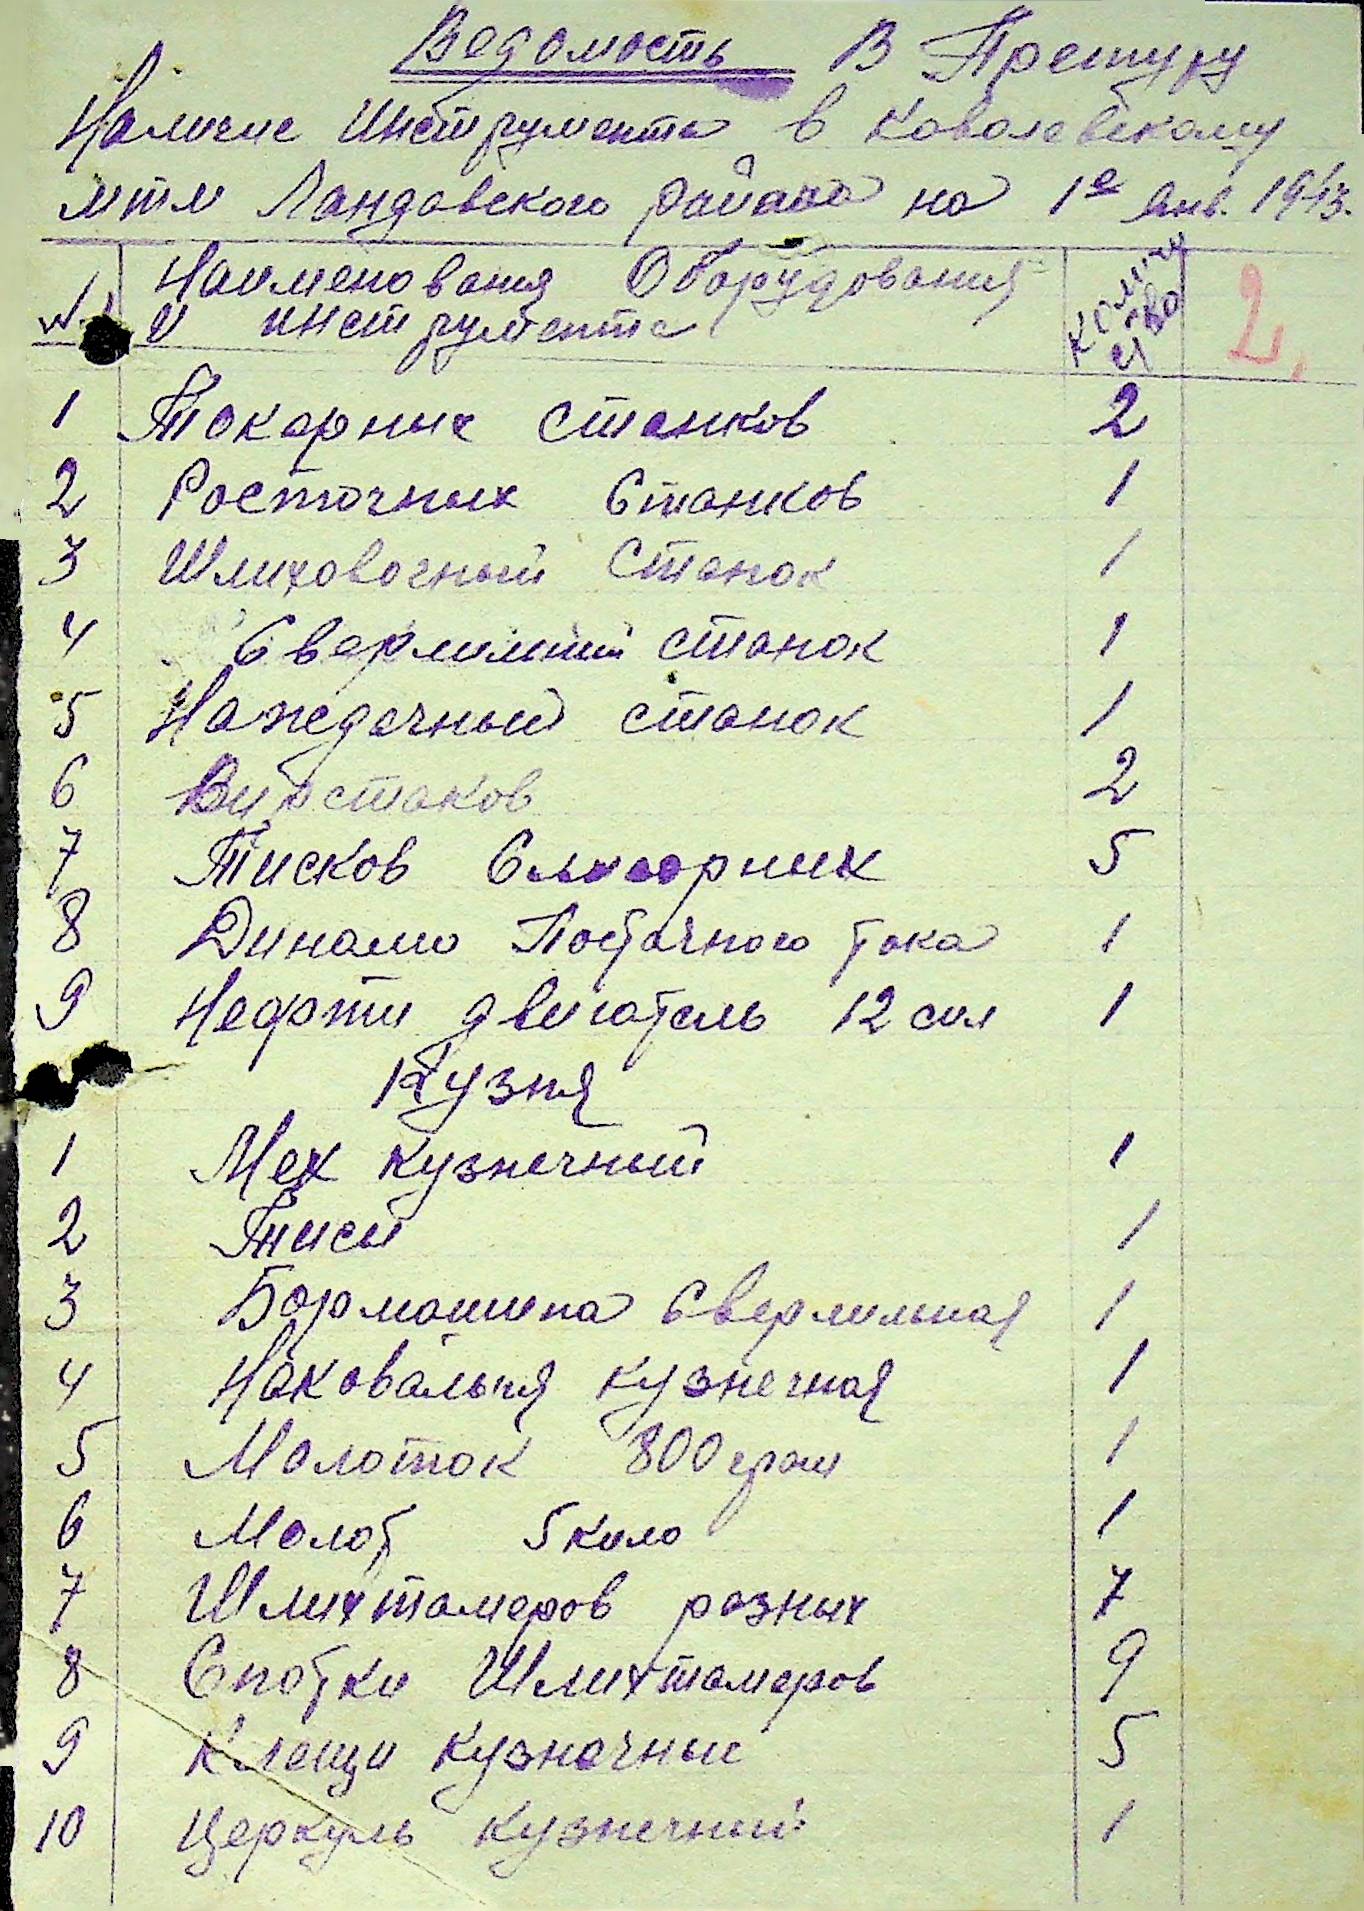 Ведомость В Претуру
Наличие Инструмента в Ковалевскому
мтм Ландавского района на 1е Янв. 1943.
Наименования Оборудования Количе
и инструмента ство
2.
1 Токарных станков 2
2 Росточных Станков 1
3 Шлиховочный Станок 1
4 Сверлильний станок 1
5 Наждачный станок 1
6 Вирстаков 2
7 Тисков Слюсорних 5
8 Динамо Постачного тока 1
9 Нефти двигатель 12 сил 1
Кузня
1 Мех кузнечный 1
2 Тиси 1
3 Бормошина Сверлильная 1
4 Наковальня кузнечная 1
5 Молоток 800 грам 1
6 Молот 5 кило 1
7 Шлихтамеров розных 7
8 Спотки Шлихтамеров 9
9 Клещи кузнечные 5
10 Церкуль кузнечный 1